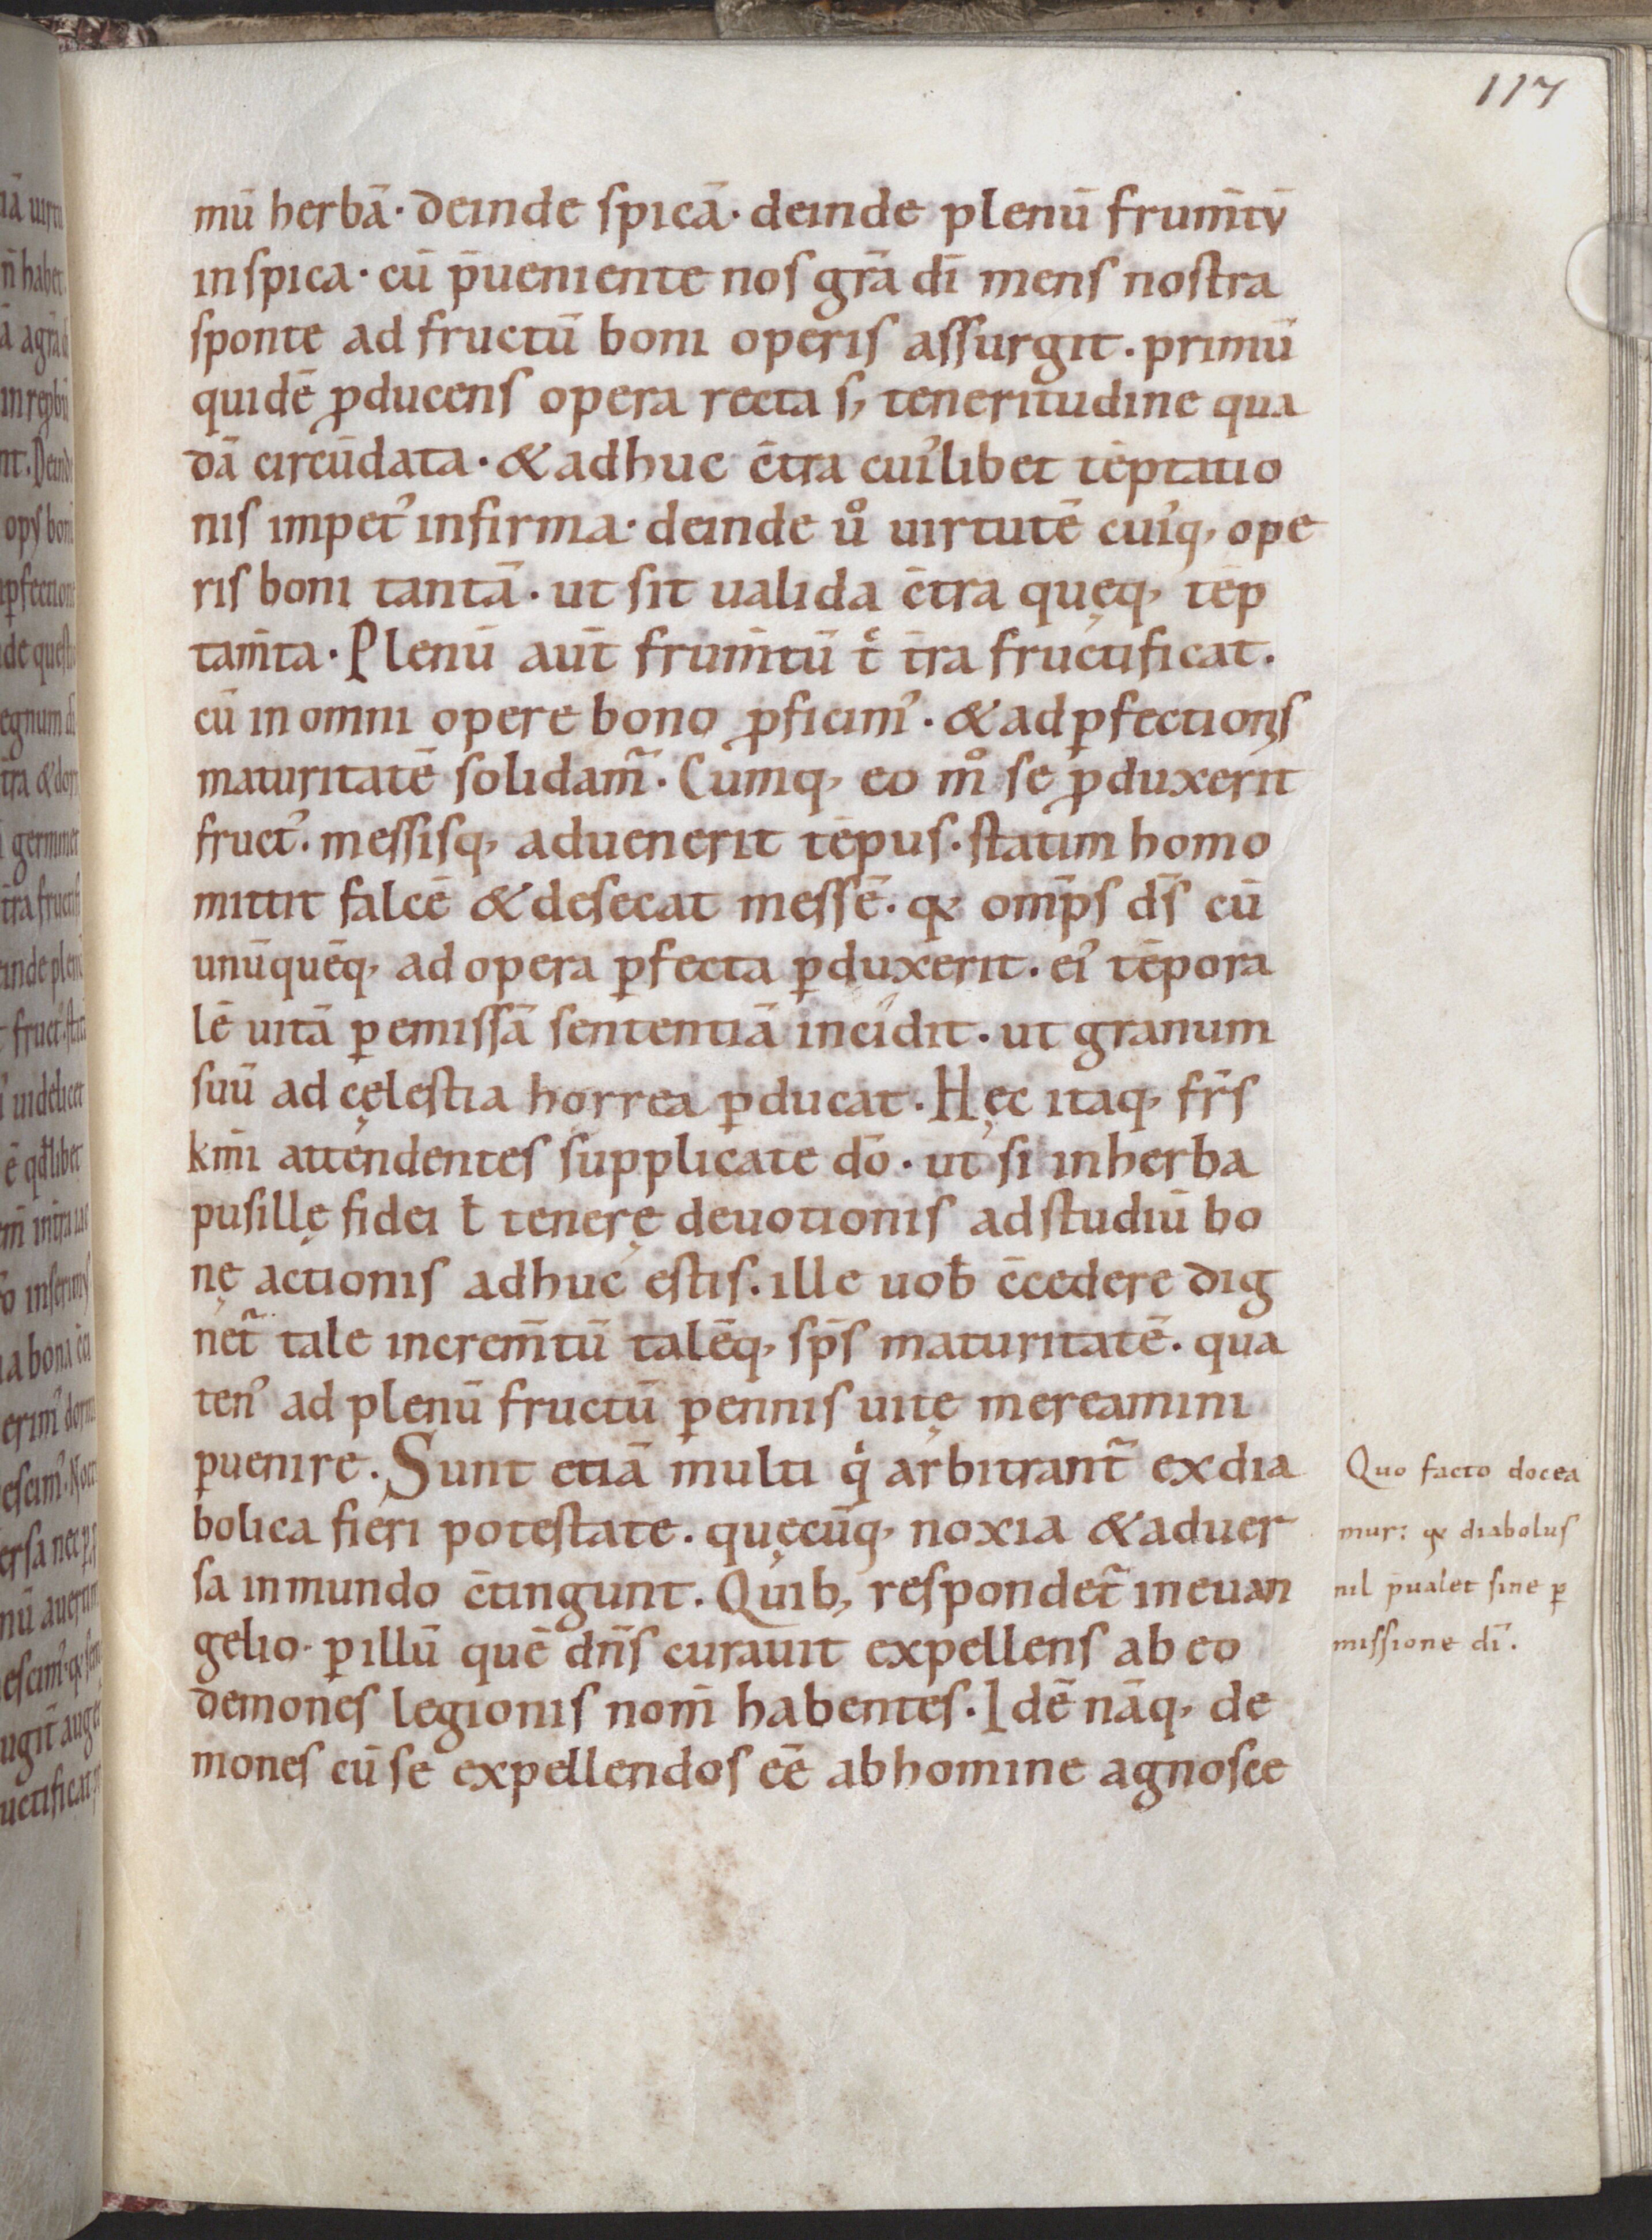 117
mū herbā· deinde spicā· deinde plenū frum̄tv
in spica· cū p̄ueniente nos gr̄a dī mens nostra
sponte ad fructū boni operis assurgit. primū
quidē ꝓducens opera recta s; teneritudine qua
dā circūdata· & adhuc c̄tra cuiꝰlibet tēptatio
nis impetꝰ infirma· deinde uͦ uirtutē cuiꝰq; ope
ris boni tantā· ut sit ualida c̄tra quęq; tēp
tam̄ta· Plenū aut̄ frum̄tū tͨ t̄ra fructificat.
cū in omni opere bono ꝓficimꝰ· & ad ꝑfectionis
maturitatē solidam̃. Cumq; eo mͦ se ꝓduxerit
fructꝰ. messisq; aduenerit tēpus· statim homo
mittit falcē & desecat messē. qꝫ om̄ps ds̄ cū
unūquēq; ad opera ꝑfecta ꝑduxerit. eiꝰ tēpora
lē uitā ꝑ emissā sententiā incidit. ut granum
suū ad cęlestia horrea ꝑducat. Hęc itaq; frs̄
km̄i attendentes supplicate dō. ut si in herba
pusillę fidei ł tenerę deuotionis ad studiū bo
nę actionis adhuc estis. ille uob̄ c̄cedere dig
net̃ tale increm̄tū talēq; sps̄ maturitatē. qua
tenꝰ ad plenū fructū ꝑennis uitę mereamini
ꝑuenire. Sunt etiā multi qͥ arbitrant̃ ex dia
bolica fieri potestate. quęcūq; noxia & aduer
sa in mundo c̄tingunt. Quib; respondet̃ in euan
gelio· ꝑ illū quē dn̄s curauit expellens ab eo
demones legionis nom̄ habentes. Idē nāq; de
mones cū se expellendos eē ab homine agnosce
Quo facto docea
mur: qꝫ diabolus
nil p̄ualet sine ꝑ
missione dī.